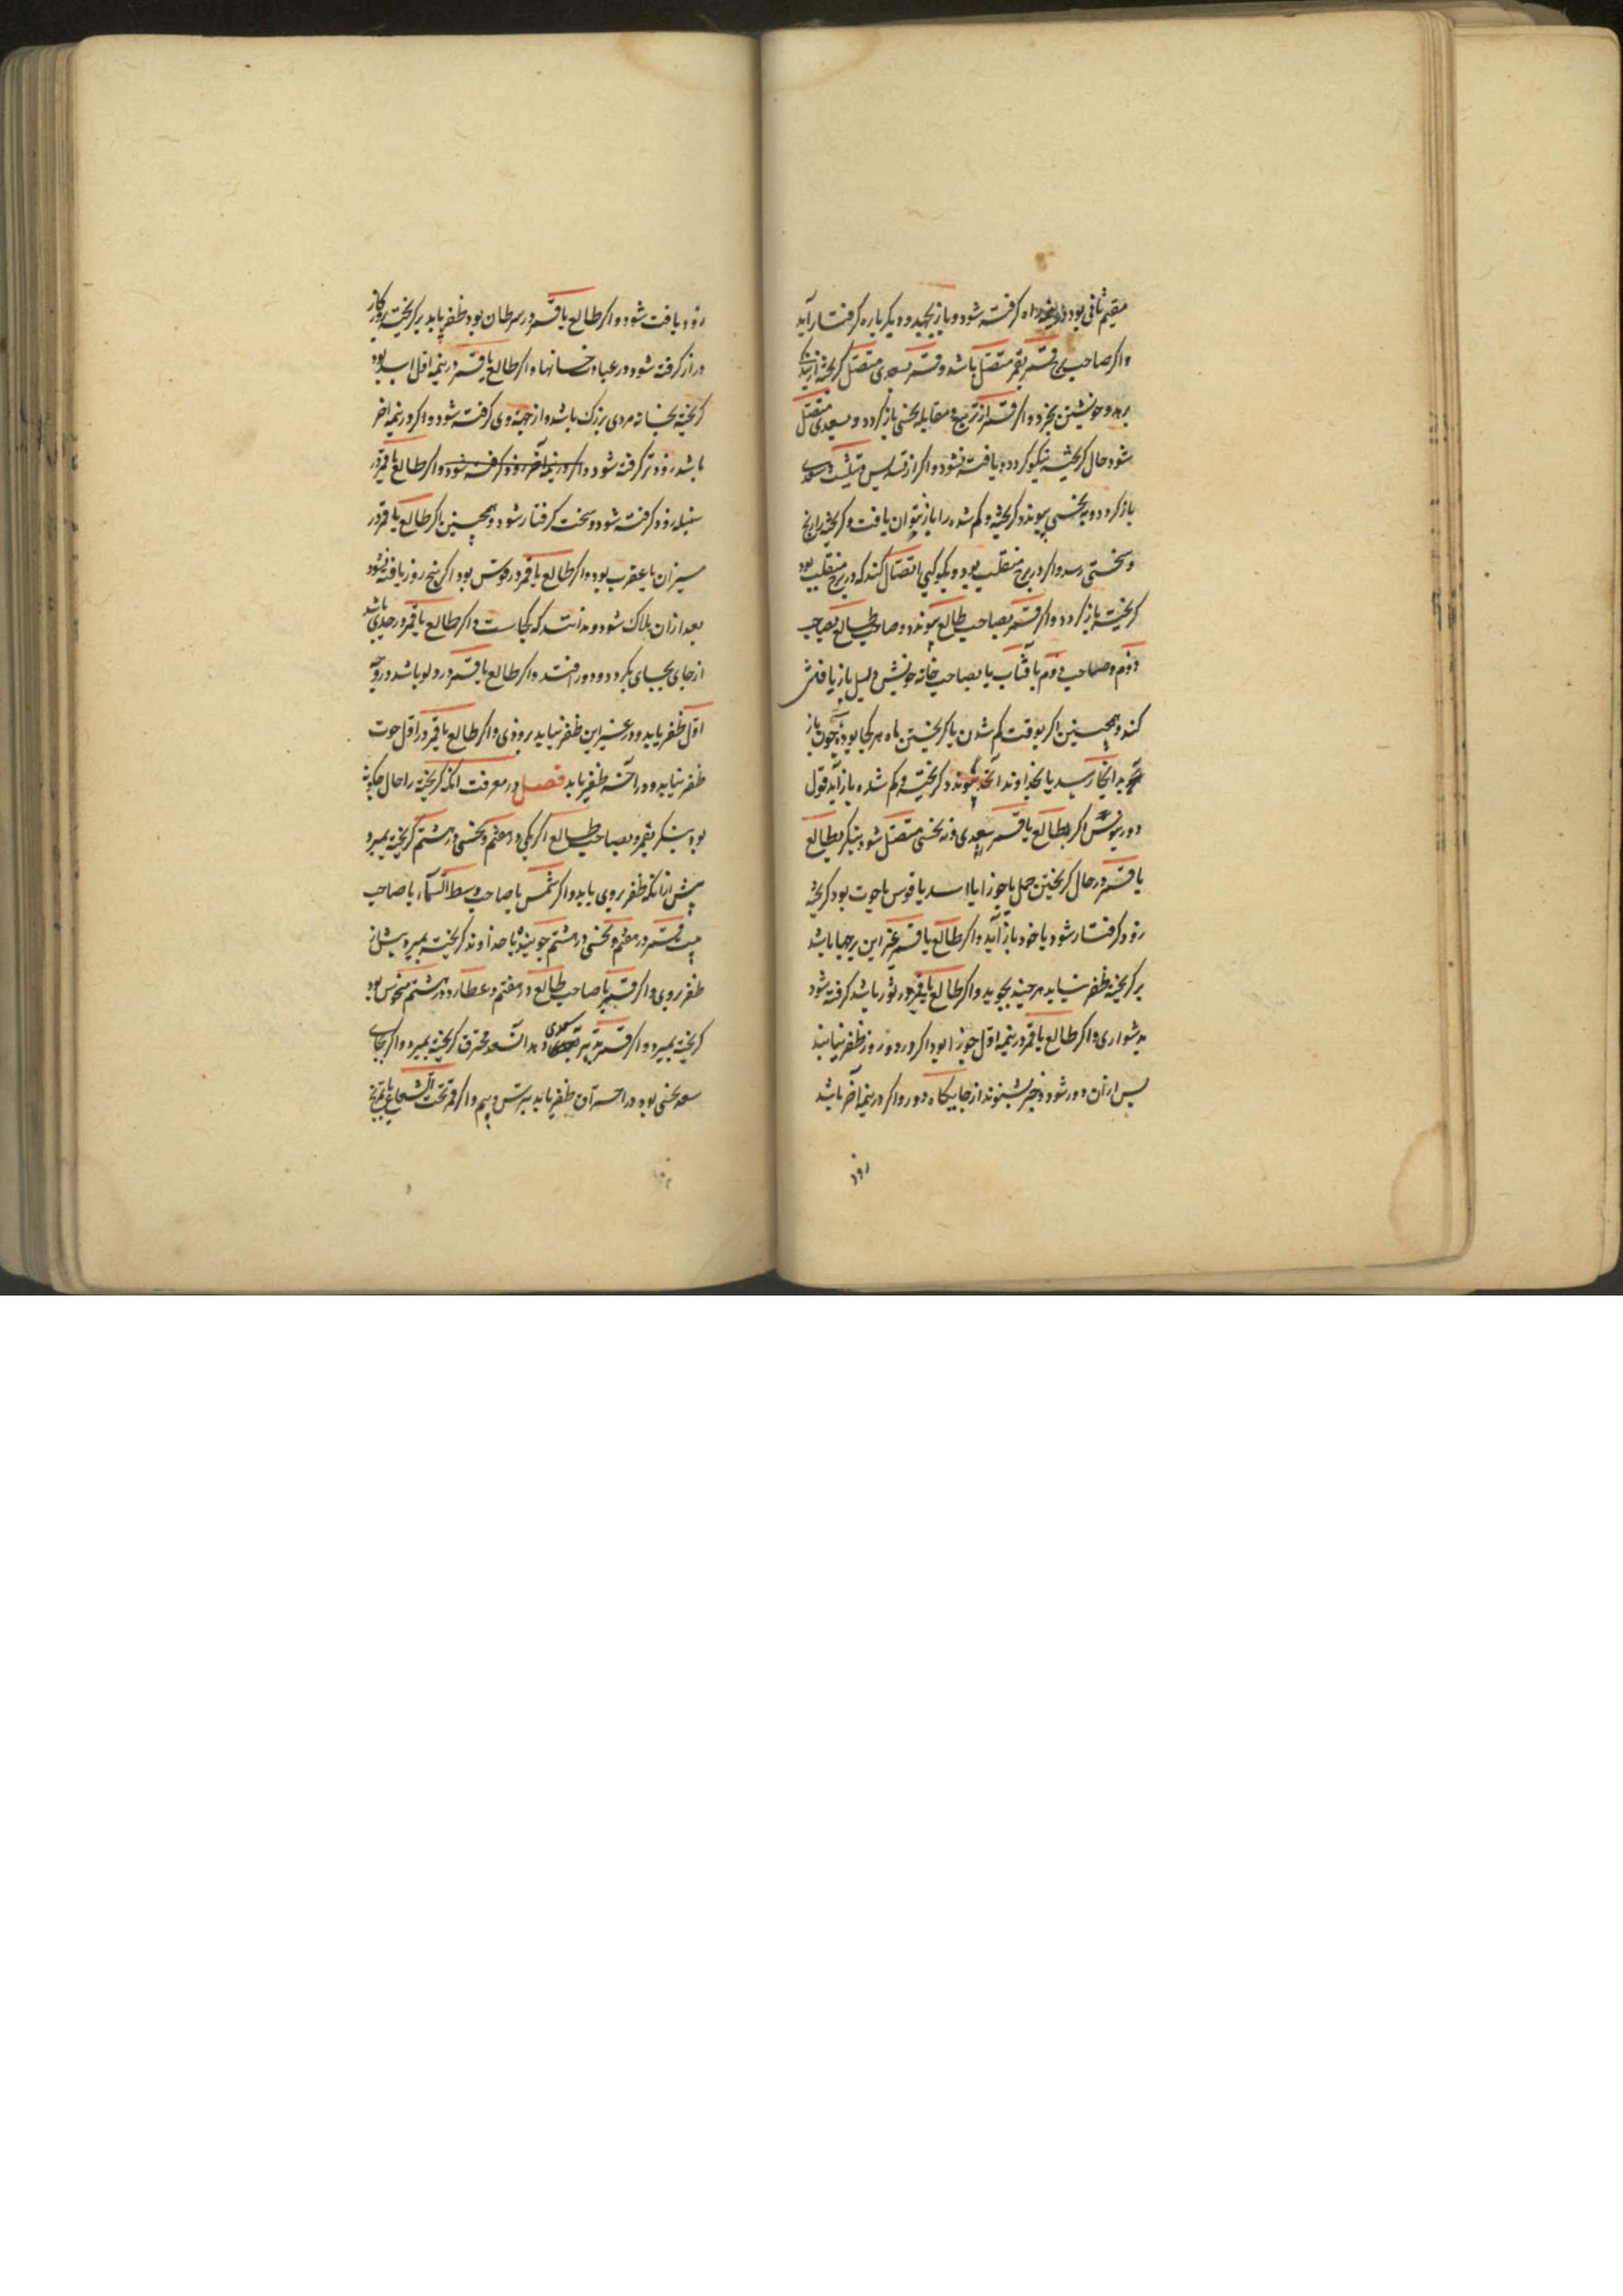 مقیم ثانی بود در راه کرفته شود و باز بجهد و دیکر باره کرفتار آید
واکر صاحب برج قمر بقمر متصل باشد و قمر بسعدی متصل کریخته از بندکی
برهد و خویشتن بخرد واکر قمر از تربیع و مقابله نحسی باز کردد و بسعدی متصل
شود حال کریخته نیکو کردد و یافته نشود واکر از تسدیس و تثلیث سعدی
باز کردد و به نحسی پیوندد کریخته و کم شده را باز نتوان یافت و کریخته را رنج
و سختی رسد واکر در برج منقلب بود و بکوکبی اتصال کند که در برج منقلب بود
کریخته باز کردد واکر قمر بصاحب طالع پیوندد و صاحب طالع بصاحب
دوم و صاحب دوم بآفتاب یا بصاحب خانه خویش دلیل باز یافتن
کند و همچنین اکر بوقت کم شدن یا کریختن ماه هر کجا بود چون باز
بدانجا رسد یا بخداوند آنجا پیوندد کریخته و کم شده باز آید قول
دورینوس اکر بطالع یا قمر نه سعدی و نه نحسی متصل شود بنکر بطالع
یا قمر در حال کریختن حمل یا جوزا یا اسد یا قوس یا حوت بود کریخته
زود کرفتار شود یا خود باز آید واکر طالع یا قمر غیر این برجها باشد
بر کریخته ظفر نیابد هر چند بجوید واکر طالع یا قمر در ثور باشد کرفته شود
بدشواری واکر طالع یا قمر در نیمه اول جوزا بود اکر در دو روز ظفر نیابند
پس از آن دور شود و خبر شنوند از جایکاه دور واکر در نیمه آخر باشد
زود
زود یافته شود واکر طالع یا قمر در سرطان بود ظفر یابد بر کریخته روزکار
دراز کرفته شود در عبادتخانها واکر طالع یا قمر در نیمه اول اسد بود
کریخته بخانه مردی بزرک باشد و از جهة وی کرفته شود واکر در نیمه آخر
باشد زودتر کرفته شود واکر در نیمه آخر زود کرفته شود واکر طالع یا قمر در
سنبله زود کرفته شود و سخت کرفتار شود و همچنین اکر طالع یا قمر در
میزان یا عقرب بود واکر طالع یا قمر در قوس بود اکر پنج روز یافته نشود
بعد از آن هلاک شود و ندانند که کجاست واکر طالع یا قمر در جدی باشد
از جای بجای بکردد و دور افتد واکر طالع یا قمر در دلو باشد در وجه
اول ظفر یابد و در غیر این ظفر نیابد بر وی واکر طالع یا قمر در اول حوت
ظفر نیابد و در آخر ظفر یابد فصل در معرفت آنکه کریخته را حال چکونه
بود بنکر بقمر و بصاحب طالع اکر یکی در هفتم و نحسی در هشتم کریخته بمیرد
پیش از آنکه ظفر بر وی یابد واکر شمس یا صاحب وسط السماء یا صاحب
بیت قمر در هفتم و نحسی در هشتم جوینده یا خداوند کریخته بمیرد پیش از
ظفر بر وی واکر قمر یا صاحب طالع در هفتم و عطارد در هشتم منحوس بود
کریخته بمیرد واکر قمر تدبیر بسعدی دهد و آن سعد محترق کریخته بمیرد واکر بجای
سعد نحسی بود در آخر آن ظفر یابد بترس و بیم واکر قمر تحت الشعاع یا بمریخ